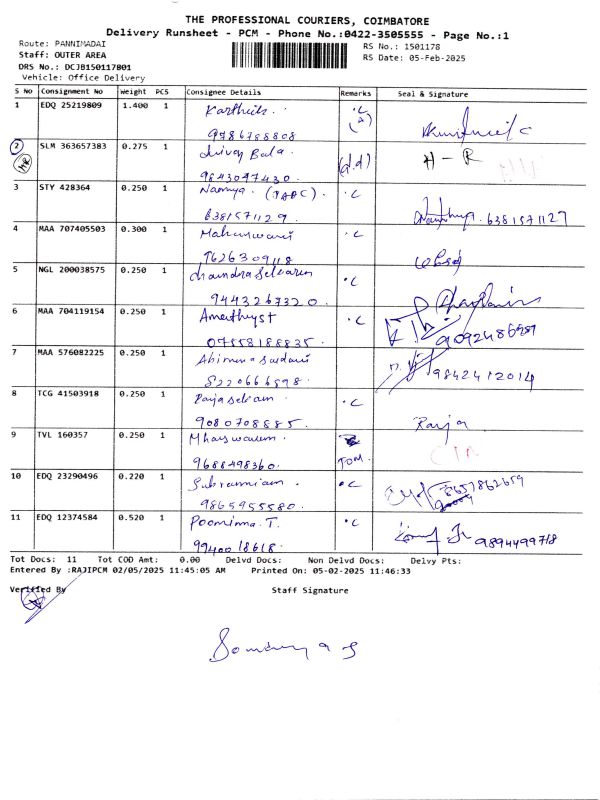 THE PROFESSIONAL COURIERS, COIMBATORE
Delivery Runsheet - PCM - Phone No.:0422-3505555 - Page No.:1
Route: PANNIMADAI
Staff: OUTER AREA
DRS No.: DCJB150117801
Vehicle: Office Delivery
RS No.: 1501178
RS Date: 05-Feb-2025
S No Consignment No Weight PCS Consignee Details Remarks Seal & Signature
1 EDQ 25219809 1.400 1 Karthik .C
(A)
9786788808
2 SLM 363657383 0.275 1 Bala (d.d) H-R
HR
9843097430
3 STY 428364 0.250 1 Namya. .C
6381571129 6381571127
4 MAA 707405503 0.300 1 Maheswari .C
9626309118
5 NGL 200038575 0.250 1 .C
9443267320
6 MAA 704119154 0.250 1 Amethyst .C
07558188835
7 MAA 576082225 0.250 1 9842412014
8220666598
8 TCG 41503918 0.250 1 Rajaselvam .C Raja
9080708885
9 TVL 160357 0.250 1
9688498360 TOM.
10 EDQ 23290496 0.220 1 .C 8657862659
9865955580
11 EDQ 12374584 0.520 1 Poornima.T. .C 9894499718
9940018618
Tot Docs: 11 Tot COD Amt: 0.00 Delvd Docs: Non Delvd Docs: Delvy Pts:
Entered By :RAJIPCM 02/05/2025 11:45:05 AM Printed On: 05-02-2025 11:46:33
Verified By Staff Signature